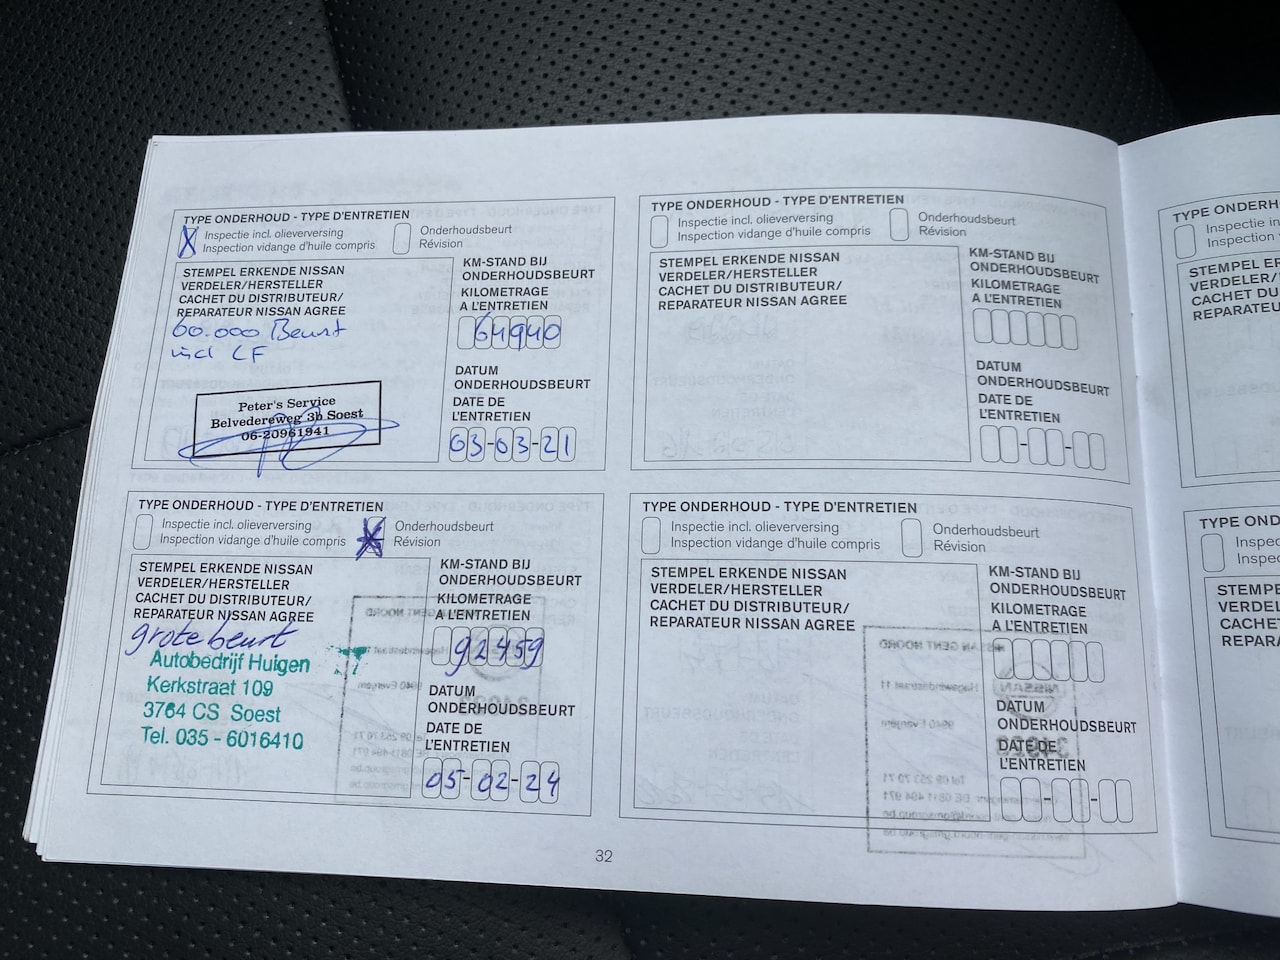 TYPE ONDERHOUD - TYPE D'ENTRETIEN
Inspectie incl. olieverversing
Inspection vidange d'huile compris
Onderhoudsbeurt
Révision
STEMPEL ERKENDE NISSAN
VERDELER/HERSTELLER
CACHET DU DISTRIBUTEUR/
REPARATEUR NISSAN AGREE
60.000 Beurt
incl LF
Peter's Service
Belvedereweg 3b Soest
06-20961941
KM-STAND BIJ
ONDERHOUDSBEURT
KILOMETRAGE
A L'ENTRETIEN
64940
DATUM
ONDERHOUDSBEURT
DATE DE
L'ENTRETIEN
03-03-21
TYPE ONDERHOUD - TYPE D'ENTRETIEN
Inspectie incl. olieverversing
Inspection vidange d'huile compris
Onderhoudsbeurt
Révision
STEMPEL ERKENDE NISSAN
VERDELER/HERSTELLER
CACHET DU DISTRIBUTEUR/
REPARATEUR NISSAN AGREE
KM-STAND BIJ
ONDERHOUDSBEURT
KILOMETRAGE
A L'ENTRETIEN
DATUM
ONDERHOUDSBEURT
DATE DE
L'ENTRETIEN
TYPE ONDERHOUD - TYPE D'ENTRETIEN
Inspectie incl. olieverversing
Inspection vidange d'huile compris
Onderhoudsbeurt
Révision
STEMPEL ERKENDE NISSAN
VERDELER/HERSTELLER
CACHET DU DISTRIBUTEUR/
REPARATEUR NISSAN AGREE
grote beurt
Autobedrijf Huigen
Kerkstraat 109
3764 CS Soest
Tel. 035 - 6016410
KM-STAND BIJ
ONDERHOUDSBEURT
KILOMETRAGE
A L'ENTRETIEN
92459
DATUM
ONDERHOUDSBEURT
DATE DE
L'ENTRETIEN
05-02-24
TYPE ONDERHOUD - TYPE D'ENTRETIEN
Inspectie incl. olieverversing
Inspection vidange d'huile compris
Onderhoudsbeurt
Révision
STEMPEL ERKENDE NISSAN
VERDELER/HERSTELLER
CACHET DU DISTRIBUTEUR/
REPARATEUR NISSAN AGREE
KM-STAND BIJ
ONDERHOUDSBEURT
KILOMETRAGE
A L'ENTRETIEN
DATUM
ONDERHOUDSBEURT
DATE DE
L'ENTRETIEN
32
TYPE ONDERH
Inspectie in
Inspection
STEMPEL ER
VERDELER/H
CACHET DU
REPARATEUR
TYPE OND
Inspec
Inspe
STEMP
VERDEL
CACHE
REPARA